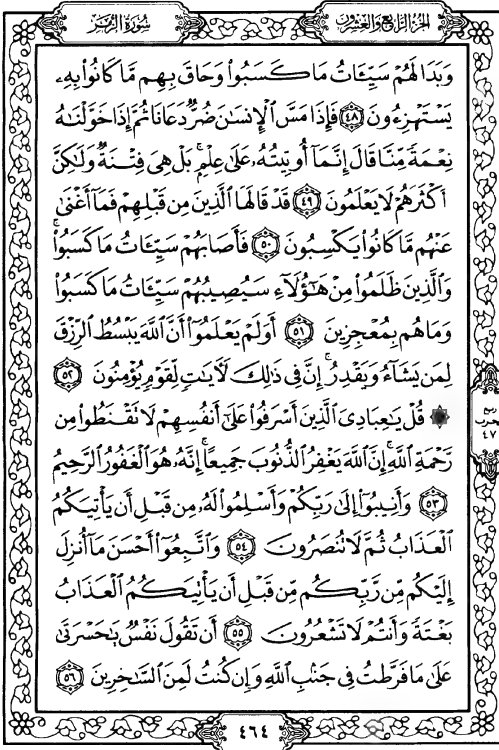 الجزء الرابع والعشرون
سورة الزمر
وَبَدَا لَهُمْ سَيِّئَاتُ مَا كَسَبُوا۟ وَحَاقَ بِهِم مَّا كَانُوا۟ بِهِۦ
يَسْتَهْزِءُونَ ٤٨ فَإِذَا مَسَّ ٱلْإِنسَٰنَ ضُرٌّ دَعَانَا ثُمَّ إِذَا خَوَّلْنَٰهُ
نِعْمَةً مِّنَّا قَالَ إِنَّمَآ أُوتِيتُهُۥ عَلَىٰ عِلْمٍۭ ۚ بَلْ هِىَ فِتْنَةٌ وَلَٰكِنَّ
أَكْثَرَهُمْ لَا يَعْلَمُونَ ٤٩ قَدْ قَالَهَا ٱلَّذِينَ مِن قَبْلِهِمْ فَمَآ أَغْنَىٰ
عَنْهُم مَّا كَانُوا۟ يَكْسِبُونَ ٥٠ فَأَصَابَهُمْ سَيِّئَاتُ مَا كَسَبُوا۟ ۚ
وَٱلَّذِينَ ظَلَمُوا۟ مِنْ هَٰٓؤُلَآءِ سَيُصِيبُهُمْ سَيِّئَاتُ مَا كَسَبُوا۟
وَمَا هُم بِمُعْجِزِينَ ٥١ أَوَلَمْ يَعْلَمُوٓا۟ أَنَّ ٱللَّهَ يَبْسُطُ ٱلرِّزْقَ
لِمَن يَشَآءُ وَيَقْدِرُ ۚ إِنَّ فِى ذَٰلِكَ لَءَايَٰتٍ لِّقَوْمٍ يُؤْمِنُونَ ٥٢
۞ قُلْ يَٰعِبَادِىَ ٱلَّذِينَ أَسْرَفُوا۟ عَلَىٰٓ أَنفُسِهِمْ لَا تَقْنَطُوا۟ مِن
رَّحْمَةِ ٱللَّهِ ۚ إِنَّ ٱللَّهَ يَغْفِرُ ٱلذُّنُوبَ جَمِيعًا ۚ إِنَّهُۥ هُوَ ٱلْغَفُورُ ٱلرَّحِيمُ
٥٣ وَأَنِيبُوٓا۟ إِلَىٰ رَبِّكُمْ وَأَسْلِمُوا۟ لَهُۥ مِن قَبْلِ أَن يَأْتِيَكُمُ
ٱلْعَذَابُ ثُمَّ لَا تُنصَرُونَ ٥٤ وَٱتَّبِعُوٓا۟ أَحْسَنَ مَآ أُنزِلَ
إِلَيْكُم مِّن رَّبِّكُم مِّن قَبْلِ أَن يَأْتِيَكُمُ ٱلْعَذَابُ
بَغْتَةً وَأَنتُمْ لَا تَشْعُرُونَ ٥٥ أَن تَقُولَ نَفْسٌ يَٰحَسْرَتَىٰ
عَلَىٰ مَا فَرَّطتُ فِى جَنۢبِ ٱللَّهِ وَإِن كُنتُ لَمِنَ ٱلسَّٰخِرِينَ ٥٦
ربع
الحزب
٤٧
٤٦٤